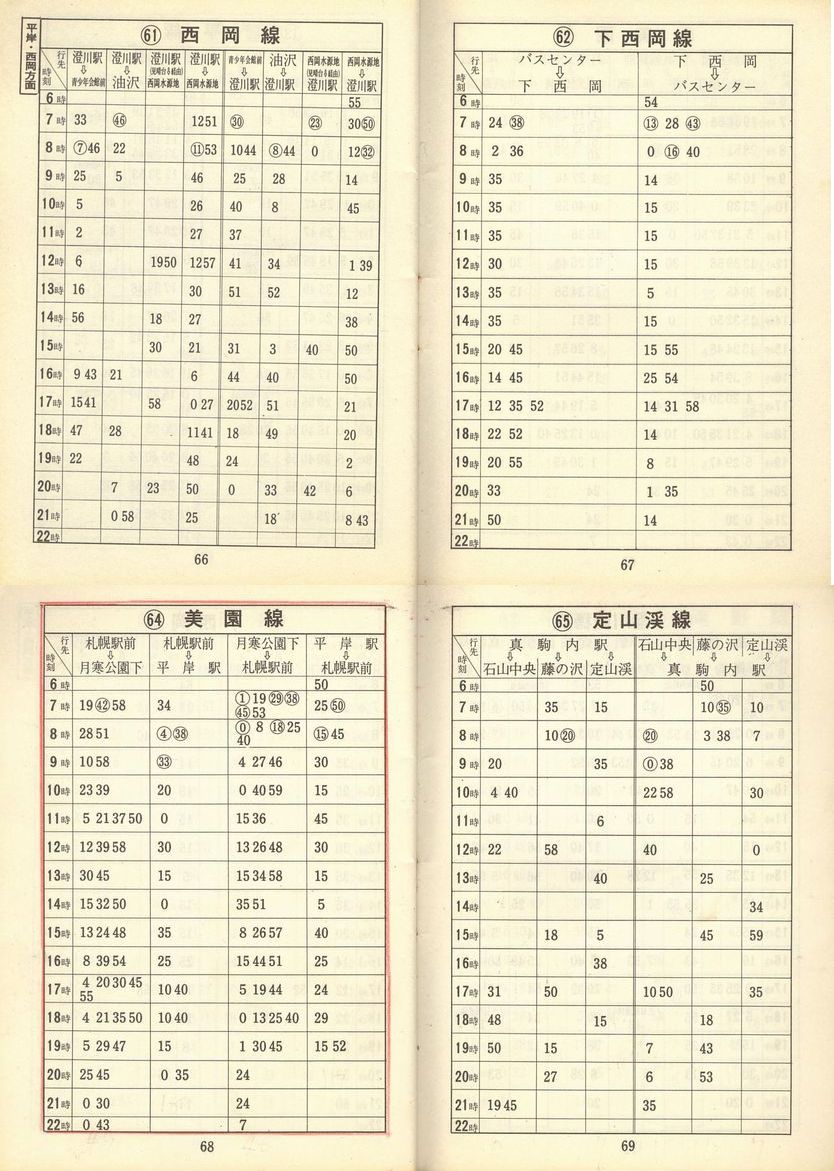 平岸・西岡方面
61 西岡線
行先 時刻 澄川駅⇩青少年会館前 澄川駅⇩油沢 澄川駅(見晴台る経由)西岡水源地 澄川駅⇩西岡水源地 青少年会館前⇩澄川駅 油沢⇩澄川駅 西岡水源地(見晴台る経由)澄川駅 西岡水源地⇩澄川駅
6時 55
7時 33 ㊻ 12 51 ㉚ ㉓ 30 ㊿
8時 ⑦ 46 22 ⑪ 53 10 44 ⑧ 44 0 12 ㉜
9時 25 5 46 25 28 14
10時 5 26 40 8 45
11時 2 27 37
12時 6 19 50 12 57 41 34 1 39
13時 16 30 51 52 12
14時 56 18 27 38
15時 30 21 31 3 40 50
16時 9 43 21 6 44 40 50
17時 15 41 58 0 27 20 52 51 21
18時 47 28 11 41 18 49 20
19時 22 48 24 2
20時 7 23 50 0 33 42 6
21時 0 58 25 18 8 43
22時
66
62 下西岡線
行先 時刻 バスセンター⇩下西岡 下西岡⇩バスセンター
6時 54
7時 24 ㊳ ⑬ 28 ㊸
8時 2 36 0 ⑯ 40
9時 35 14
10時 35 15
11時 35 15
12時 30 15
13時 35 5
14時 35 15
15時 20 45 15 55
16時 14 45 25 54
17時 12 35 52 14 31 58
18時 22 52 14
19時 20 55 8
20時 33 1 35
21時 50 14
22時
67
64 美園線
行先 時刻 札幌駅前⇩月寒公園下 札幌駅前⇩平岸駅 月寒公園下⇩札幌駅前 平岸駅⇩札幌駅前
6時 50
7時 19 ㊷ 58 34 ① 19 ㉙ ㊳ ㊺ 53 25 ㊿
8時 28 51 ④ ㊳ ⓪ 8 ⑱ 25 40 ⑮ 45
9時 10 58 ㉝ 4 27 46 30
10時 23 39 20 0 40 59 15
11時 5 21 37 50 0 15 36 45
12時 12 39 58 30 13 26 48 30
13時 30 45 15 15 34 58 15
14時 15 32 50 0 35 51 5
15時 13 24 48 35 8 26 57 40
16時 8 39 54 25 15 44 51 25
17時 4 20 30 45 55 10 40 5 19 44 24
18時 4 21 35 50 10 40 0 13 25 40 29
19時 5 29 47 15 1 30 45 15 52
20時 25 45 0 35 24
21時 0 30 24
22時 0 43 7
68
65 定山渓線
行先 時刻 真駒内駅⇩石山中央 藤の沢 定山渓 石山中央 藤の沢 定山渓⇩真駒内駅
6時 50
7時 35 15 10 ㉟ 10
8時 10 ⑳ ⑳ 3 38 7
9時 20 35 ⓪ 38
10時 4 40 22 58 30
11時 6
12時 22 58 40 0
13時 40 25
14時 34
15時 18 5 45 59
16時 38
17時 31 50 10 50 35
18時 48 15 18
19時 50 15 7 43
20時 27 6 53
21時 19 45 35
22時
69